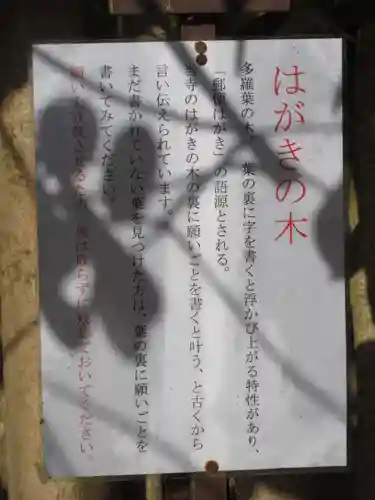 はがきの木
多羅葉の木。葉の裏に字を書くと浮かび上がる特性があり、
「郵便はがき」の語源とされる。
当寺のはがきの木の裏に願いごとを書くと叶う、と古くから
言い伝えられています。
まだ書かれていない葉を見つけた方は、葉の裏に願いごとを
書いてみてください。
願いを成就させるため、葉は取らずに
ておいてください。